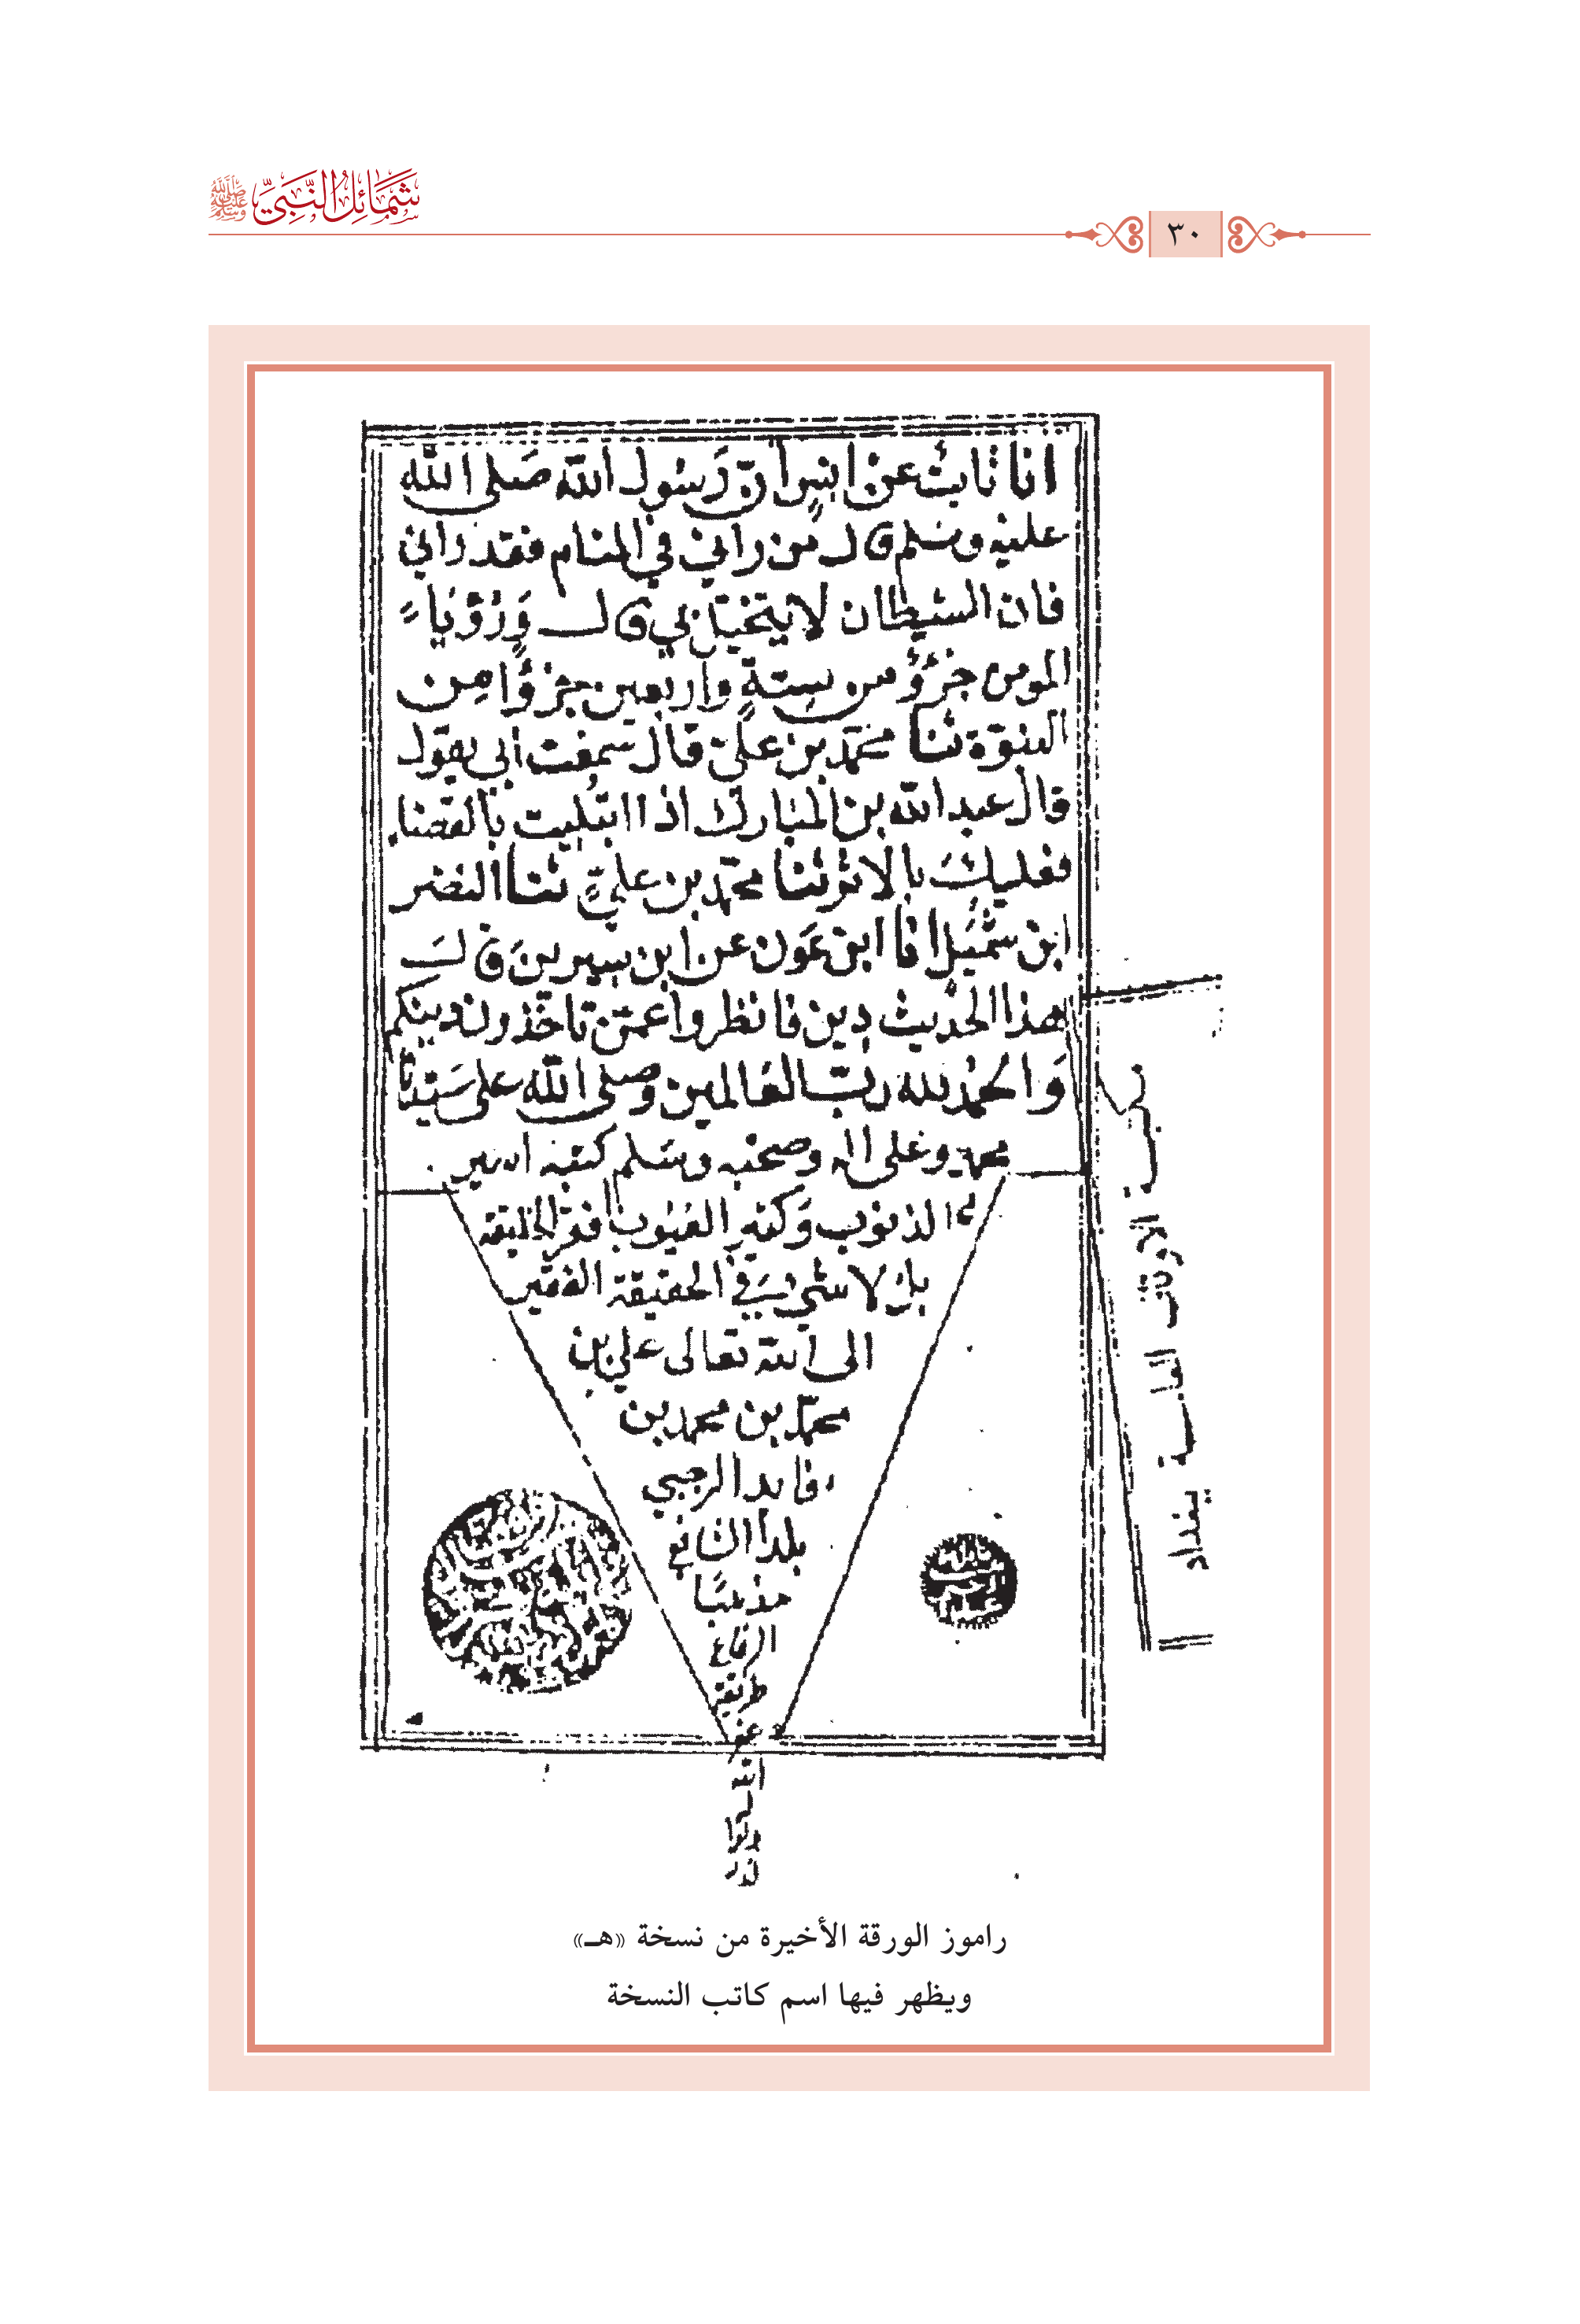 شَمَائِلُ النَّبِيِّ ﷺ
٣٠
انا ثابت عن انس ان رسول الله صلى الله
عليه وسلم قال من راني في المنام فقد راني
فان الشيطان لا يتخيل بي قال ورؤيا
المومن جزؤ من ستة واربعين جزؤا من
النبوة ثنا محمد بن علي قال سمعت ابي يقول
قال عبد الله بن المبارك اذا ابتليت بالقضا
فعليك بالاثر ثنا محمد بن علي ثنا النضر
ابن شميل انا ابن عون عن ابن سيرين قال
هذا الحديث دين فانظروا عمن تاخذون دينكم
والحمد لله رب العالمين وصلى الله على سيدنا
محمد وعلى اله وصحبه وسلم كتبه اسير
الذنوب وكثير العيوب افقر الخليقة
بل لا شي في الحقيقة الفقير
الى الله تعالى علي بن
محمد بن محمد بن
قايد الرجبي
بلدا
مذهبا
الرفاعي
طريقة
مكتبة الاوقاف العامة ببغداد
راموز الورقة الأخيرة من نسخة «هـ»
ويظهر فيها اسم كاتب النسخة